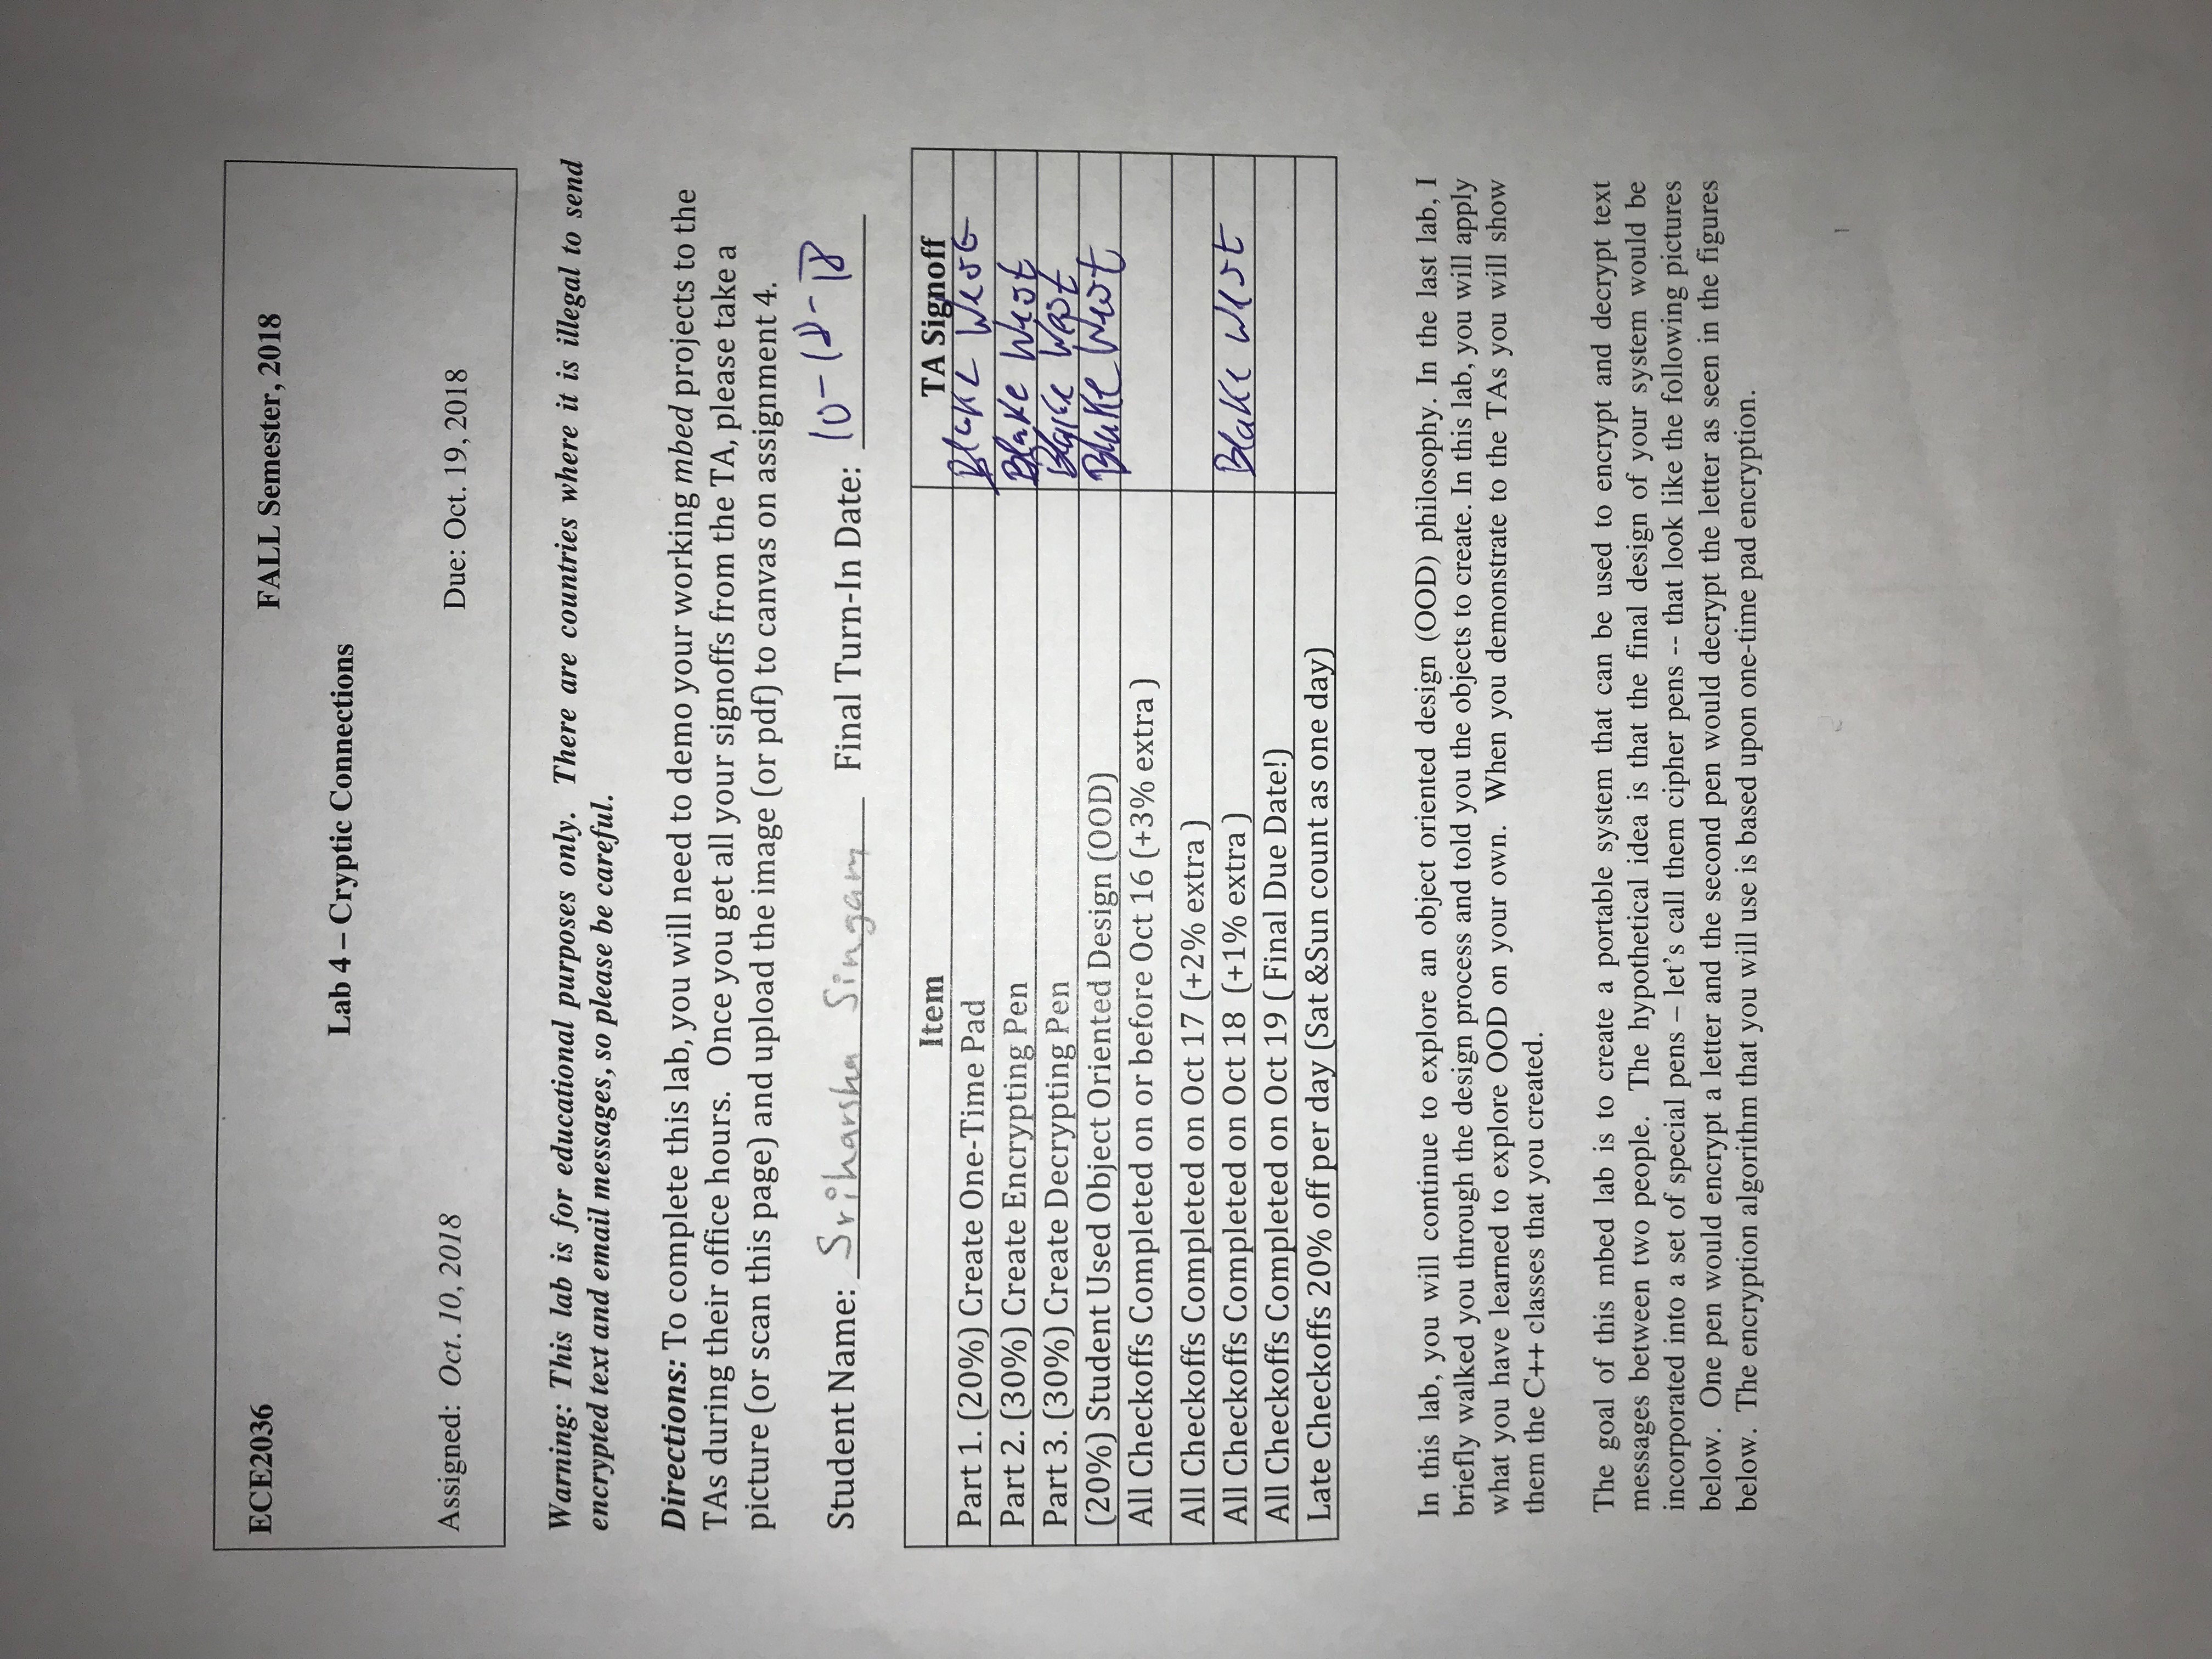 ECE2036 FALL Semester, 2018
Lab 4 – Cryptic Connections
Assigned: Oct. 10, 2018 Due: Oct. 19, 2018
Warning: This lab is for educational purposes only. There are countries where it is illegal to send
encrypted text and email messages, so please be careful.
Directions: To complete this lab, you will need to demo your working mbed projects to the
TAs during their office hours. Once you get all your signoffs from the TA, please take a
picture (or scan this page) and upload the image (or pdf) to canvas on assignment 4.
Student Name: Sriharsha Singam Final Turn-In Date: 10-18-18
Item TA Signoff
Part 1. (20%) Create One-Time Pad Blake West
Part 2. (30%) Create Encrypting Pen Blake West
Part 3. (30%) Create Decrypting Pen Blake West
(20%) Student Used Object Oriented Design (OOD) Blake West
All Checkoffs Completed on or before Oct 16 (+3% extra )
All Checkoffs Completed on Oct 17 (+2% extra )
All Checkoffs Completed on Oct 18 (+1% extra ) Blake West
All Checkoffs Completed on Oct 19 ( Final Due Date!)
Late Checkoffs 20% off per day (Sat &Sun count as one day)
In this lab, you will continue to explore an object oriented design (OOD) philosophy. In the last lab, I
briefly walked you through the design process and told you the objects to create. In this lab, you will apply
what you have learned to explore OOD on your own. When you demonstrate to the TAs you will show
them the C++ classes that you created.
The goal of this mbed lab is to create a portable system that can be used to encrypt and decrypt text
messages between two people. The hypothetical idea is that the final design of your system would be
incorporated into a set of special pens – let's call them cipher pens -- that look like the following pictures
below. One pen would encrypt a letter and the second pen would decrypt the letter as seen in the figures
below. The encryption algorithm that you will use is based upon one-time pad encryption.
1